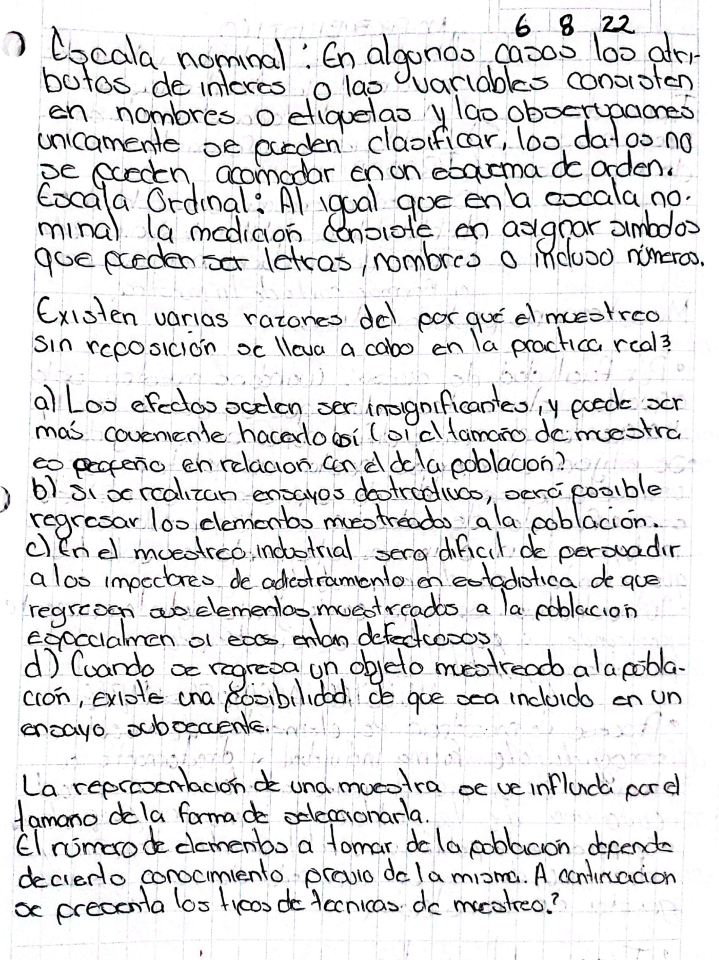 6 8 22
Escala nominal: En algunos casos los atri-
butos de interes o las variables consisten
en nombres o etiquetas y las observaciones
unicamente se pueden clasificar, los datos no
se pueden acomodar en un esquema de orden.
Escala Ordinal: Al igual que en la escala no-
minal la medición consiste en asignar simbolos
que pueden ser letras, nombres o incluso números.
Existen varias razones del por qué el muestreo
sin reposición se lleva a cabo en la practica real?
a) Los efectos suelen ser insignificantes, y puede ser
mas coveniente hacerlo así (si el tamaño de muestra
es pequeño en relación con el de la población?
b) Si se realizan ensayos destructivos, será posible
regresar los elementos muestreados a la población.
c) En el muestreo industrial sera dificil de persuadir
a los inspectores de adiestramiento en estadistica de que
regresen sus elementos muestreados a la población
especialmen si esos estan defectuosos
d) Cuando se regresa un objeto muestreado a la pobla-
ción, existe una posibilidad de que sea incluido en un
ensayo subsecuente.
La representación de una muestra se ve influida por el
tamano de la forma de seleccionarla.
El número de elementos a tomar de la población depende
de cierto conocimiento previo de la misma. A continuación
se presenta los tipos de tecnicas de muestreo.?